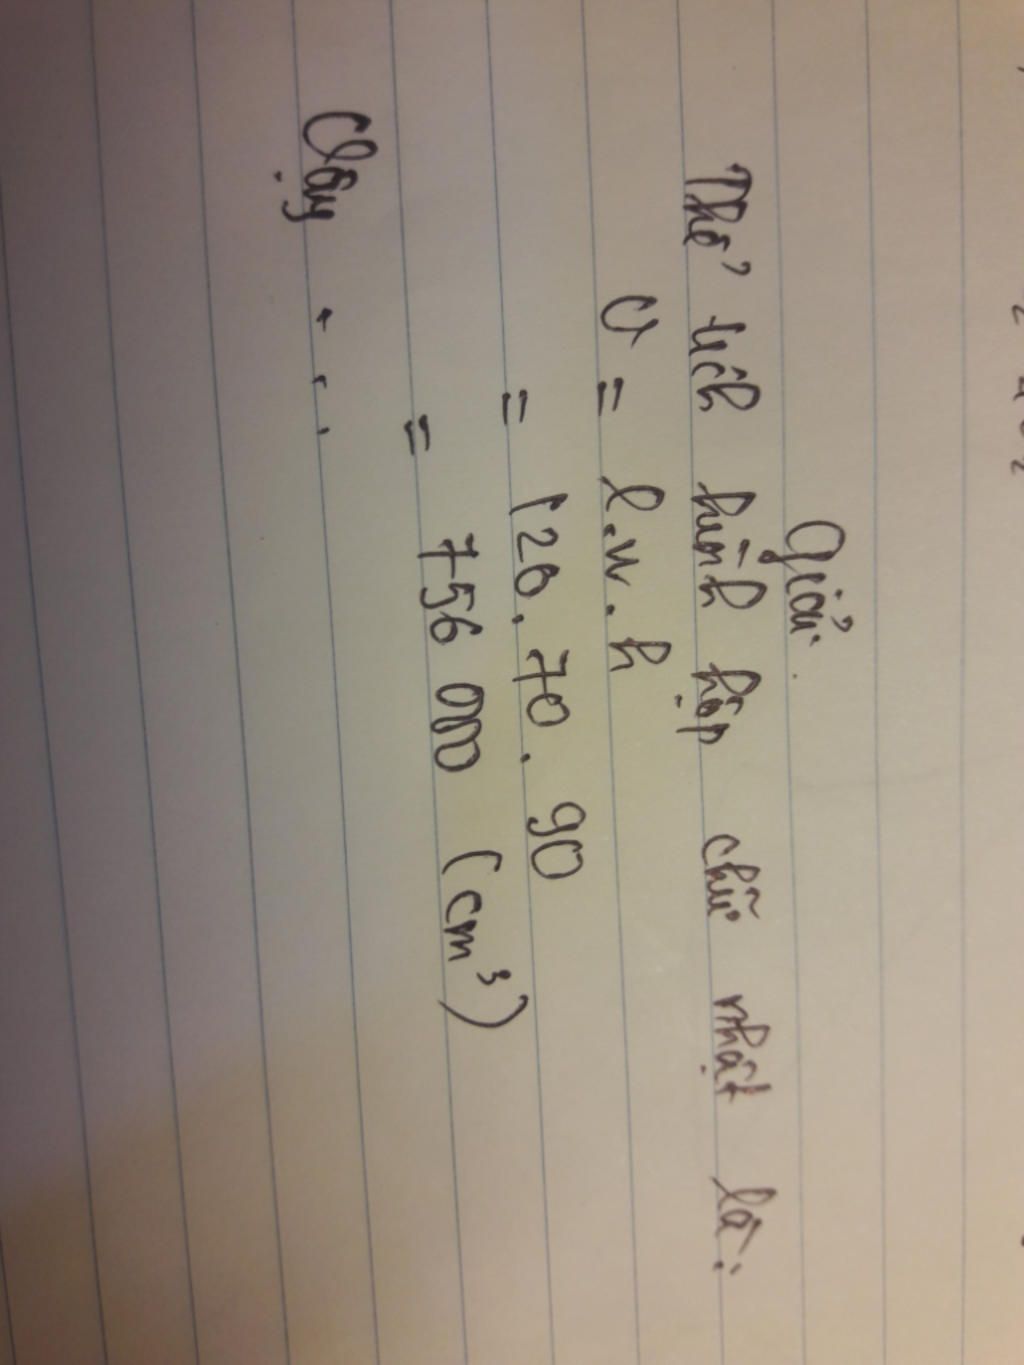 Giải.
Thể tích hình hộp chữ nhật là:
V = l.w.h
= 120.70.90
= 756 000 (cm³)
Vậy ...